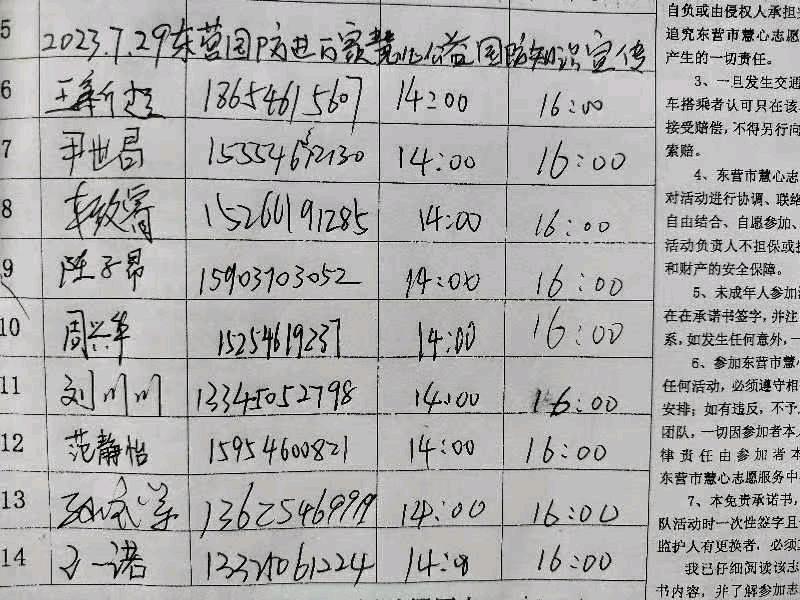 5 2023.7.29东营国防进万家慧心公益国防知识宣传
6 王新超 18654615607 14:00 16:00
7 尹世昌 14:00 16:00
8 15266191285 14:00 16:00
9 陈子昂 15903703052 14:00 16:00
10 周兴华 15254619237 14:00 16:00
11 刘川川 13345052798 14:00 16:00
12 范静怡 15954600821 14:00 16:00
13 14:00 16:00
14 王一诺 14:0 16:00
自负或由侵权人承担
追究东营市慧心志愿
产生的一切责任。
3、一旦发生交通
车搭乘者认可只在该
接受赔偿,不得另行向
索赔。
4、东营市慧心志
对活动进行协调、联络
自由结合、自愿参加、
活动负责人不担保或
和财产的安全保障。
5、未成年人参加
在在承诺书签字,并注
系,如发生任何意外,一
6、参加东营市慧心
任何活动,必须遵守相
安排;如有违反,不予
团队,一切因参加者本人
律责任由参加者本
东营市慧心志愿服务中
7、本免责承诺书,
队活动时一次性签字且
监护人有更换者,必须
我已仔细阅读该志
书内容,并了解参加志